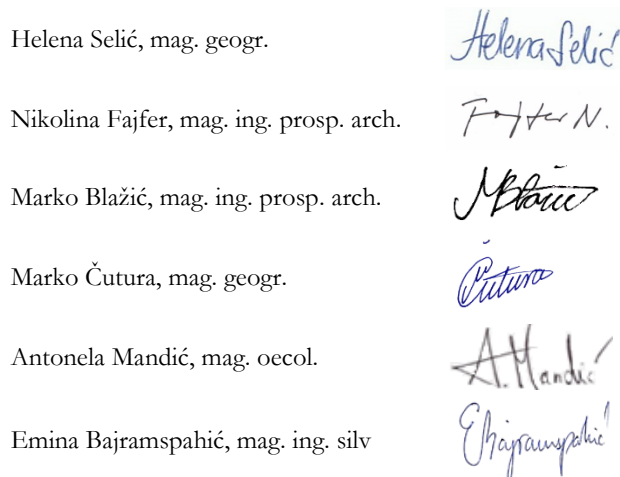 Helena Selić, mag. geogr. Helena Selić
Nikolina Fajfer, mag. ing. prosp. arch. Fajfer N.
Marko Blažić, mag. ing. prosp. arch. MBlažić
Marko Čutura, mag. geogr. Čutura
Antonela Mandić, mag. oecol. A. Mandić
Emina Bajramspahić, mag. ing. silv EBajramspahić